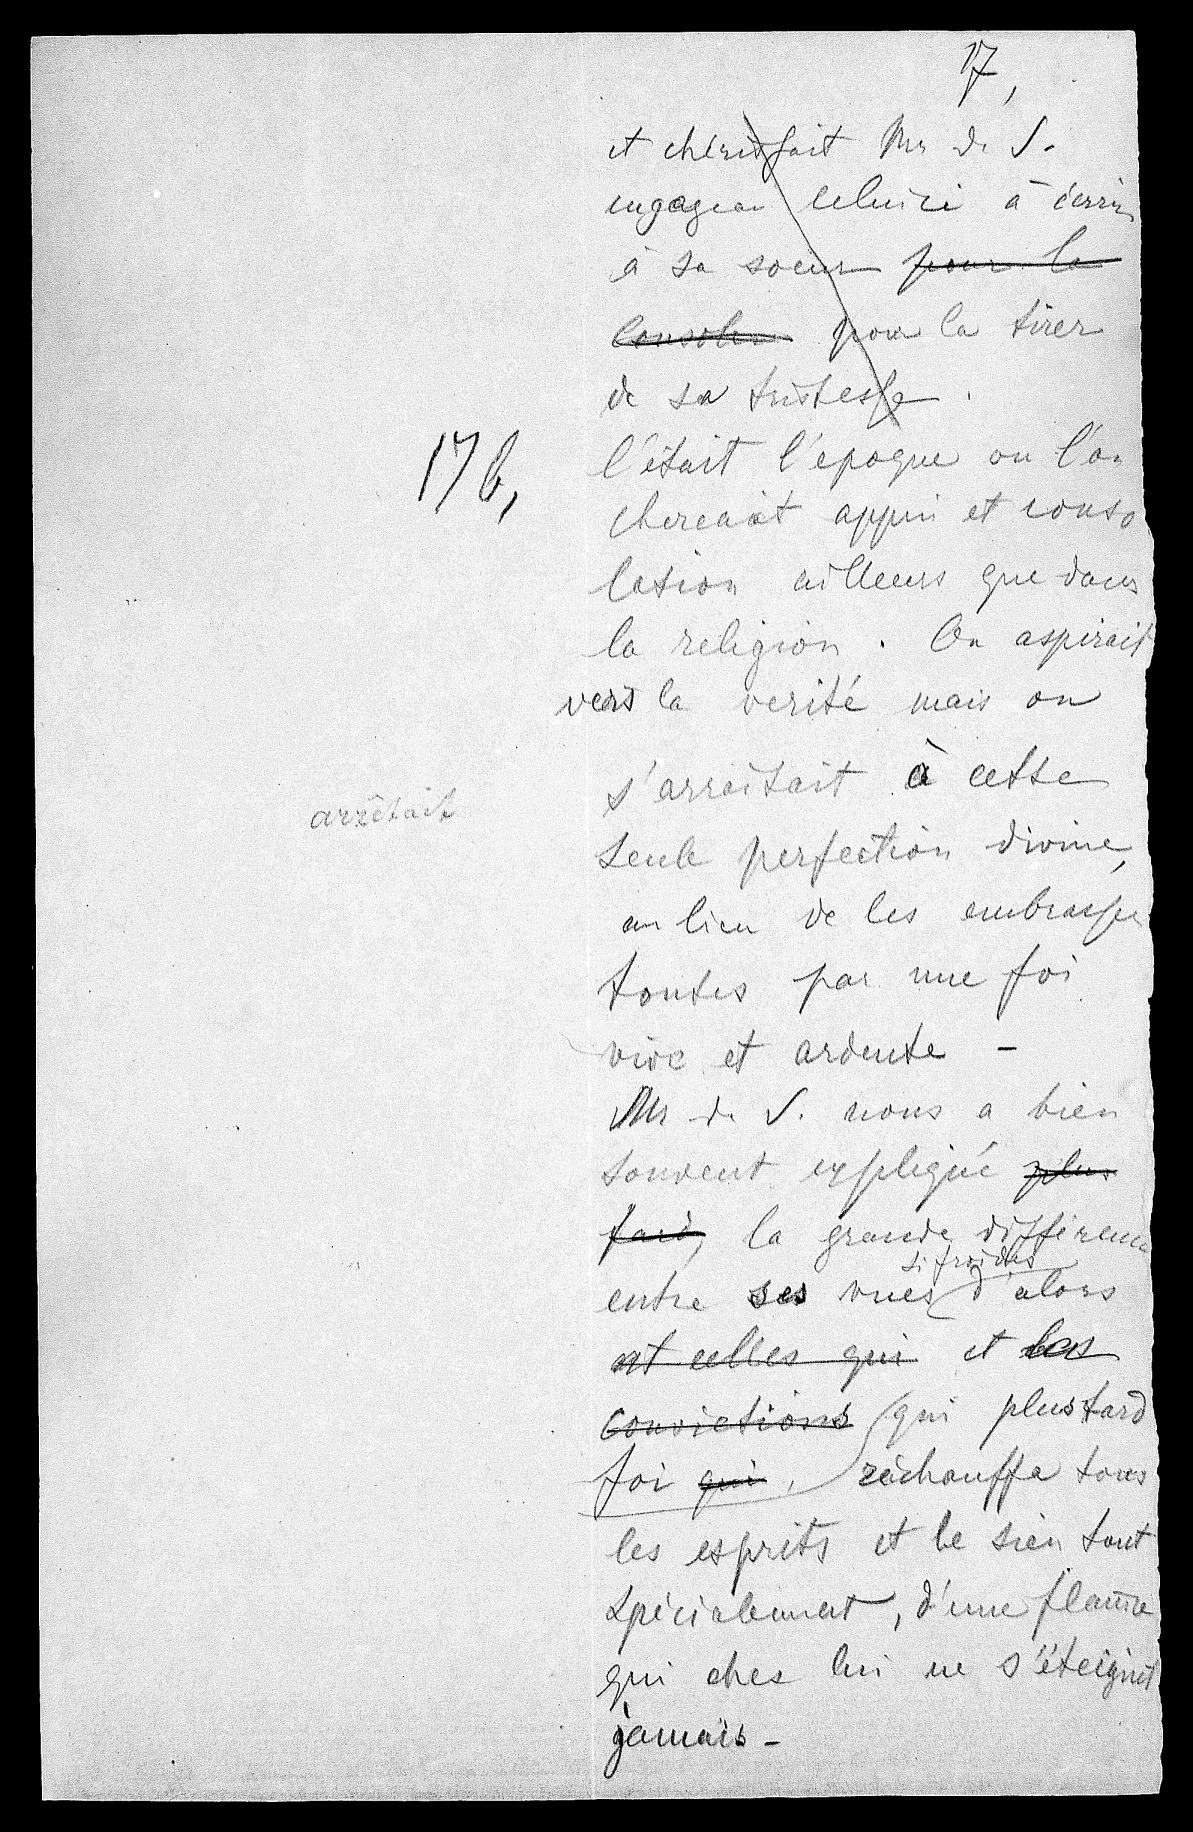 17,
et cherissait Mr de S.
engagea celui ci à écrire
à sa soeur pour la
consoler pour la tirer
de sa tristesse.
17 b,
C'était l'epoque ou l'on
chercait appui et conso
lation ailleurs que dans
la religion. On aspirait
vers la verité mais on
s'arraitait à cette
arrêtait
seule perfection divine,
au lieu de les embrasser
toutes par une foi
vive et ardente -
Mr de S. nous a bien
souvent expliqué plus
tard, la grande différence
si froides
entre ses vues d'alors
et celles qui et les
convictions qui plus tard
foi qui, réchauffa tous
les esprits et le sien tout
spécialement, d'une flamme
qui chez lui ne s'éteignit
jamais -